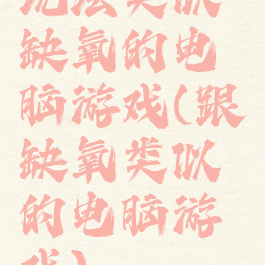 玩法类似
缺氧的电
脑游戏(跟
缺氧类似
的电脑游
戏)